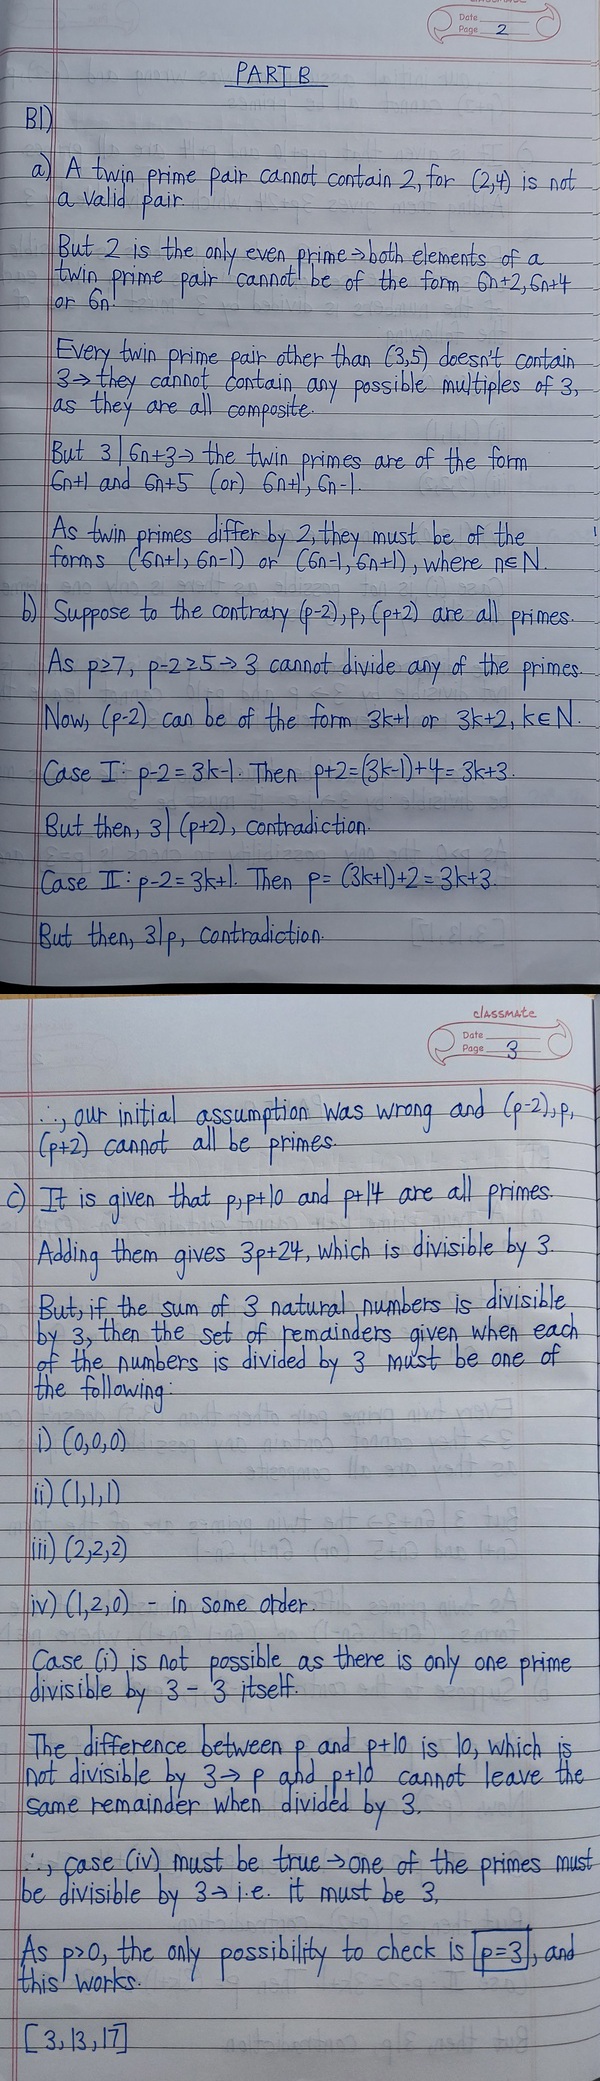 CLASSMATE
Date
Page 2
PART B
B1)
a) A twin prime pair cannot contain 2, for (2,4) is not
a valid pair
But 2 is the only even prime→both elements of a
twin prime pair cannot be of the form 6n+2, 6n+4
or 6n.
Every twin prime pair other than (3,5) doesn't contain
3→ they cannot contain any possible multiples of 3,
as they are all composite.
But 3|6n+3→ the twin primes are of the form
6n+1 and 6n+5 (or) 6n+1, 6n-1.
As twin primes differ by 2, they must be of the
forms (6n+1, 6n-1) or (6n-1, 6n+1), where n∈N.
b) Suppose to the contrary (p-2), p, (p+2) are all primes.
As p≥7, p-2≥5→ 3 cannot divide any of the primes.
Now, (p-2) can be of the form 3k+1 or 3k+2, k∈N.
Case I: p-2=3k-1. Then p+2=(3k-1)+4=3k+3.
But then, 3|(p+2), contradiction.
Case II: p-2=3k+1. Then p= (3k+1)+2=3k+3.
But then, 3|p, contradiction.
classmate
Date
Page 3
∴, our initial assumption was wrong and (p-2), p,
(p+2) cannot all be primes.
c) It is given that p, p+10 and p+14 are all primes.
Adding them gives 3p+24, which is divisible by 3.
But, if the sum of 3 natural numbers is divisible
by 3, then the set of remainders given when each
of the numbers is divided by 3 must be one of
the following:
i) (0,0,0)
ii) (1,1,1)
iii) (2,2,2)
iv) (1,2,0) - in some order.
Case (i) is not possible as there is only one prime
divisible by 3 - 3 itself.
The difference between p and p+10 is 10, which is
not divisible by 3→ p and p+10 cannot leave the
same remainder when divided by 3.
∴, case (iv) must be true→one of the primes must
be divisible by 3→ i.e. it must be 3.
As p>0, the only possibility to check is p=3, and
this works.
[3, 13, 17]